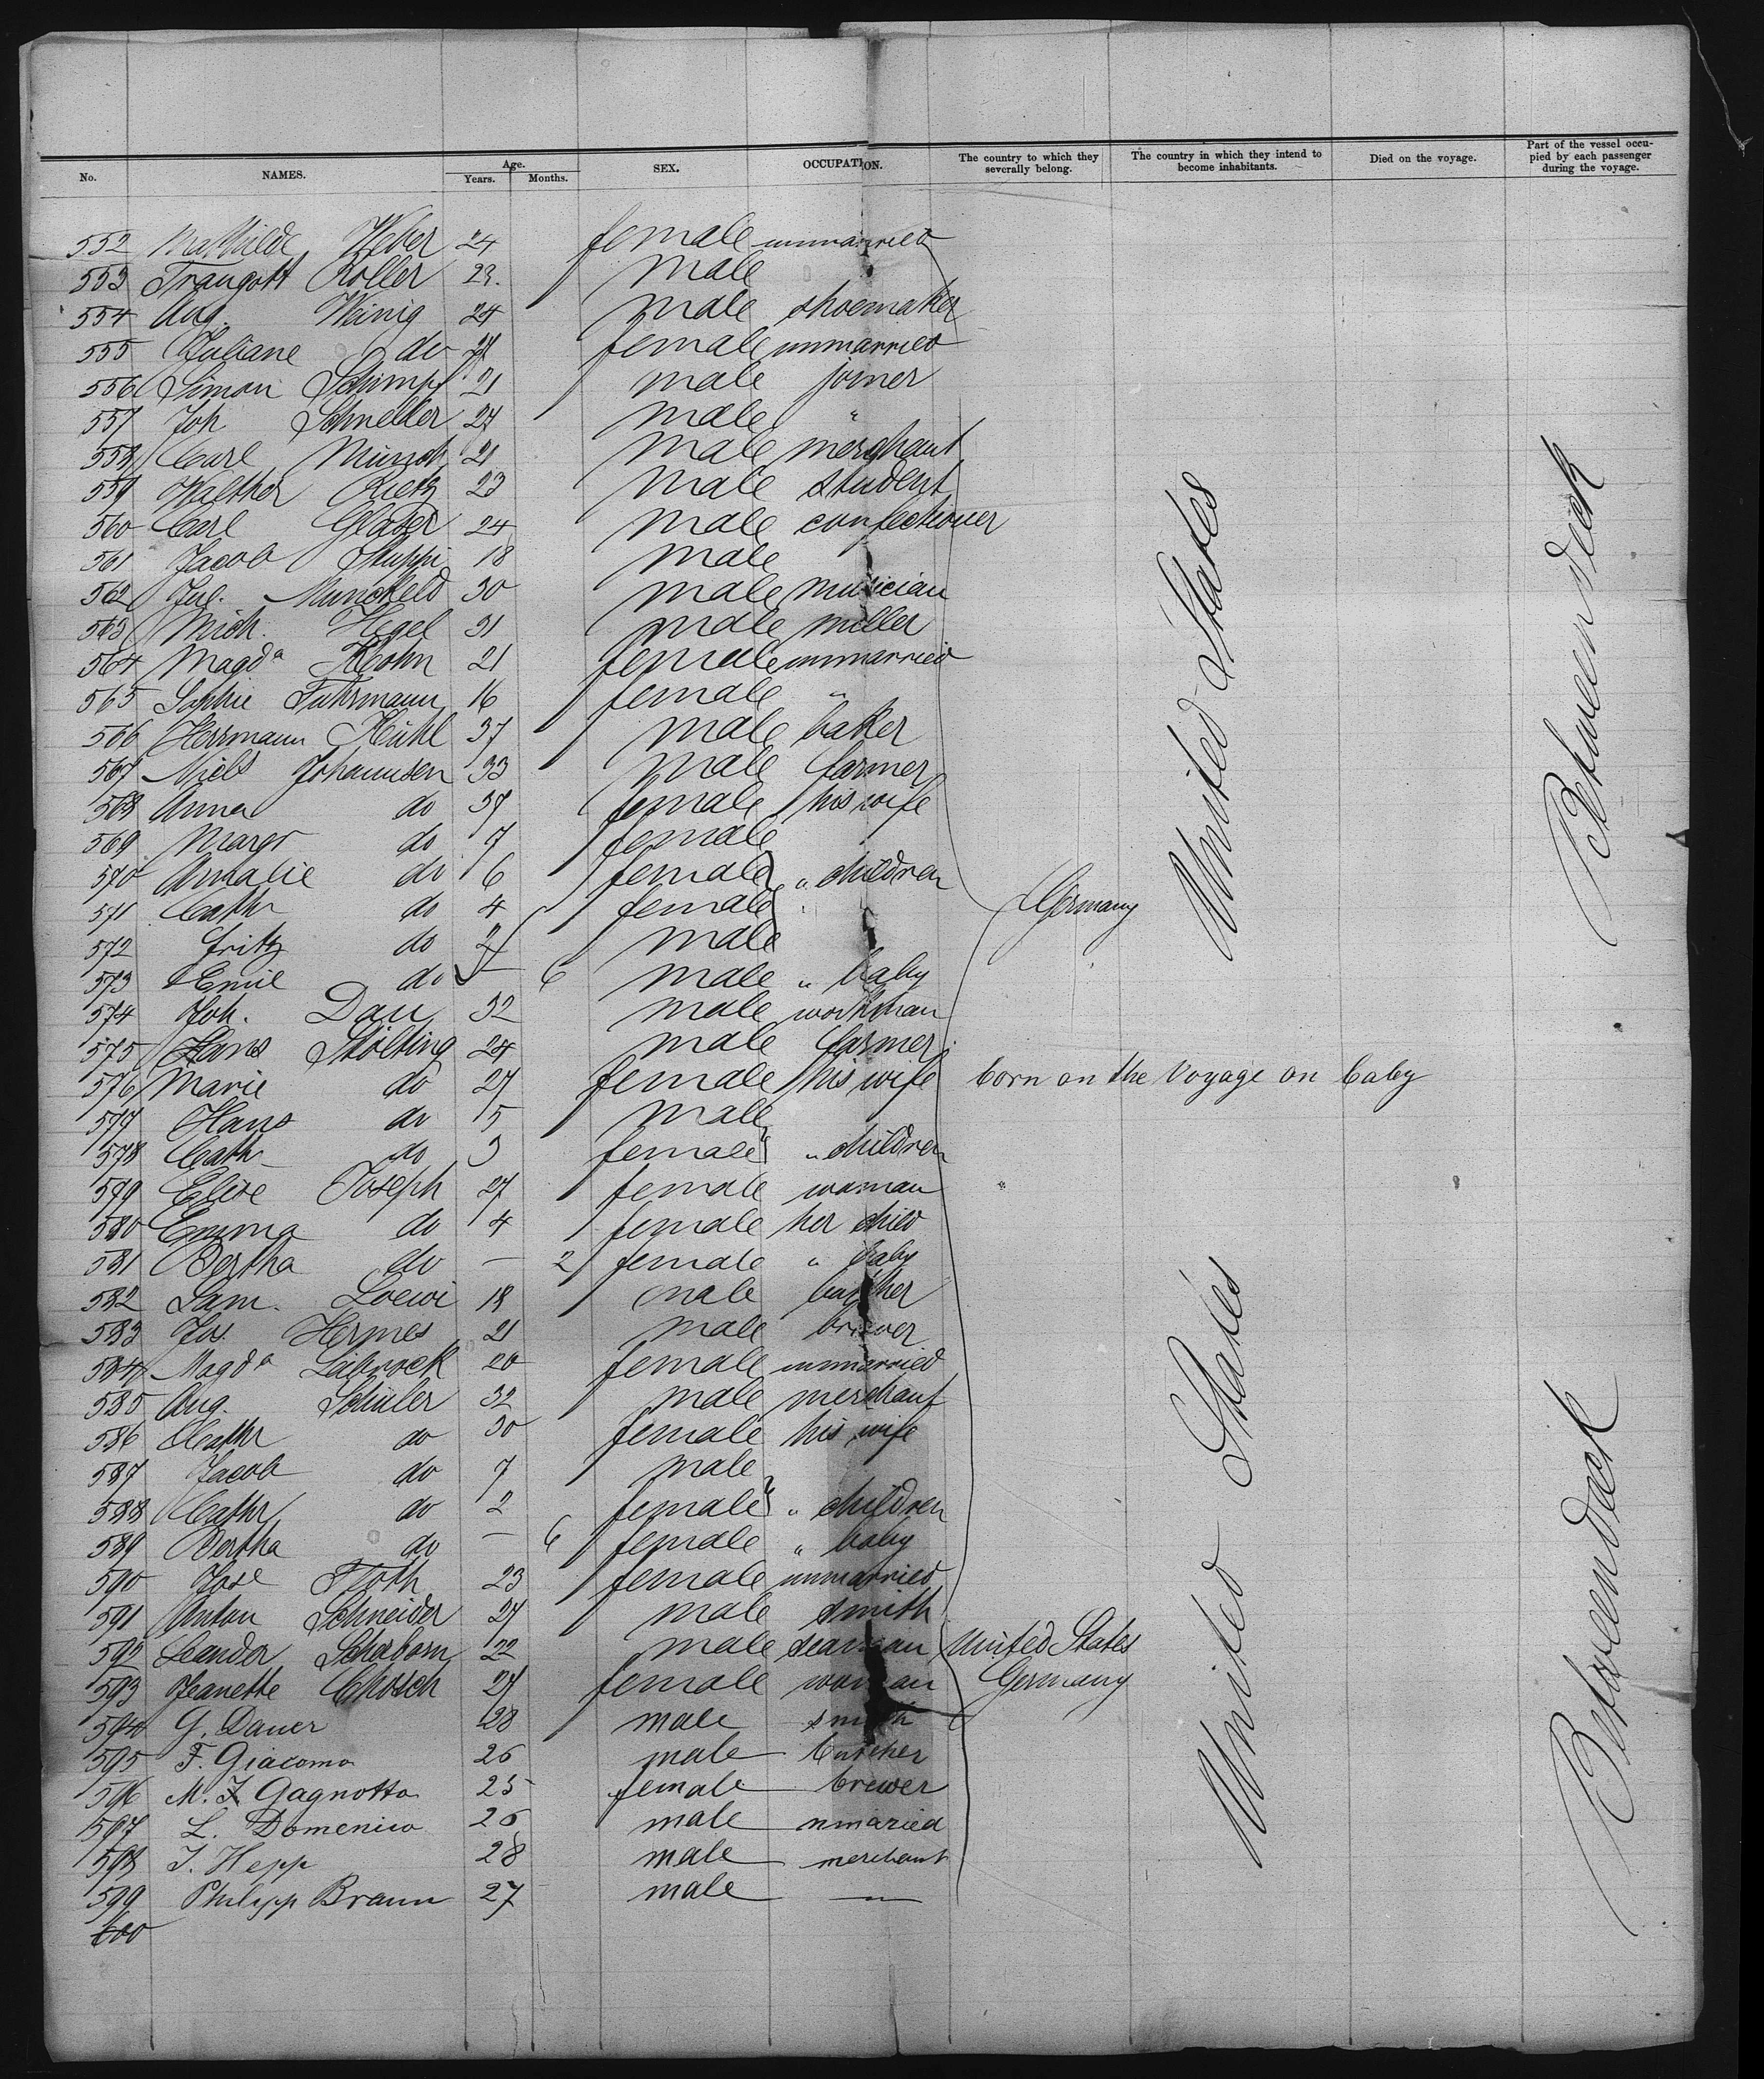 No. NAMES. Age. Years. Months. SEX. OCCUPATION. The country to which they severally belong. The country in which they intend to become inhabitants. Died on the voyage. Part of the vessel occupied by each passenger during the voyage.
552 Mathilde Weber 24 female unmarried
553 Traugott Roller 23. male
554 Aug. Weinig 24 male shoemaker
555 Juliane do female unmarried
556 Simon Schimpf 21 male joiner
557 Joh Schneller 27 male "
558 Carl Münch 21 male merchant
559 Walther Rietz 23 male student
560 Carl Glaser 24 male confectioner
561 Jacob Stuppi 18 male
562 Jul. Munckeld 30 male musician
563 Mich. Hegel 31 male miller
564 Magda Klohn 21 female unmarried
565 Sophie Fuhrmann 16 female "
566 Herrmann Kühl 37 male baker
567 Niels Johannsen 33 male farmer
568 Anna do 37 female his wife
569 Margr do 7 female
570 Amalie do 6 female " children
571 Cathr do 4 female "
572 Fritz do 2 male
573 Emil do — 6 male " baby
574 Joh. Dau 32 male workman
575 Hans Stölting 24 male farmer
576 Marie do 27 female his wife born on the voyage on baby
577 Hans do 5 male
578 Cath do 3 female " children
579 Elise Joseph 27 female woman "
580 Emma do 4 female her child
581 Bertha do — 2 female " baby
582 Sam. Loewi 18 male butcher
583 Jos. Hermes 21 male brewer
584 Magda Leibrock 20 female unmarried
585 Aug. Schüler 32 male merchant
586 Cathr do 30 female his wife
587 Jacob do 7 male
588 Cathr do 2 female " children
589 Bertha do — 6 female " baby
590 Jose Roth 23 female unmarried
591 Anton Schneider 27 male smith
592 Leander Scherborn 22 male seaman United States
593 Jeanette 27 female woman Germany
594 G. Dauer 28 male smith
595 F. Giacomo 26 male butcher
596 M. F. Gagnotto 25 female brewer
597 L. Domenico 26 male nmaried
598 J. Hepp 28 male merchant
599 Philipp Braun 27 male —"—
600
Germany
United States
United States
Between deck
Between deck